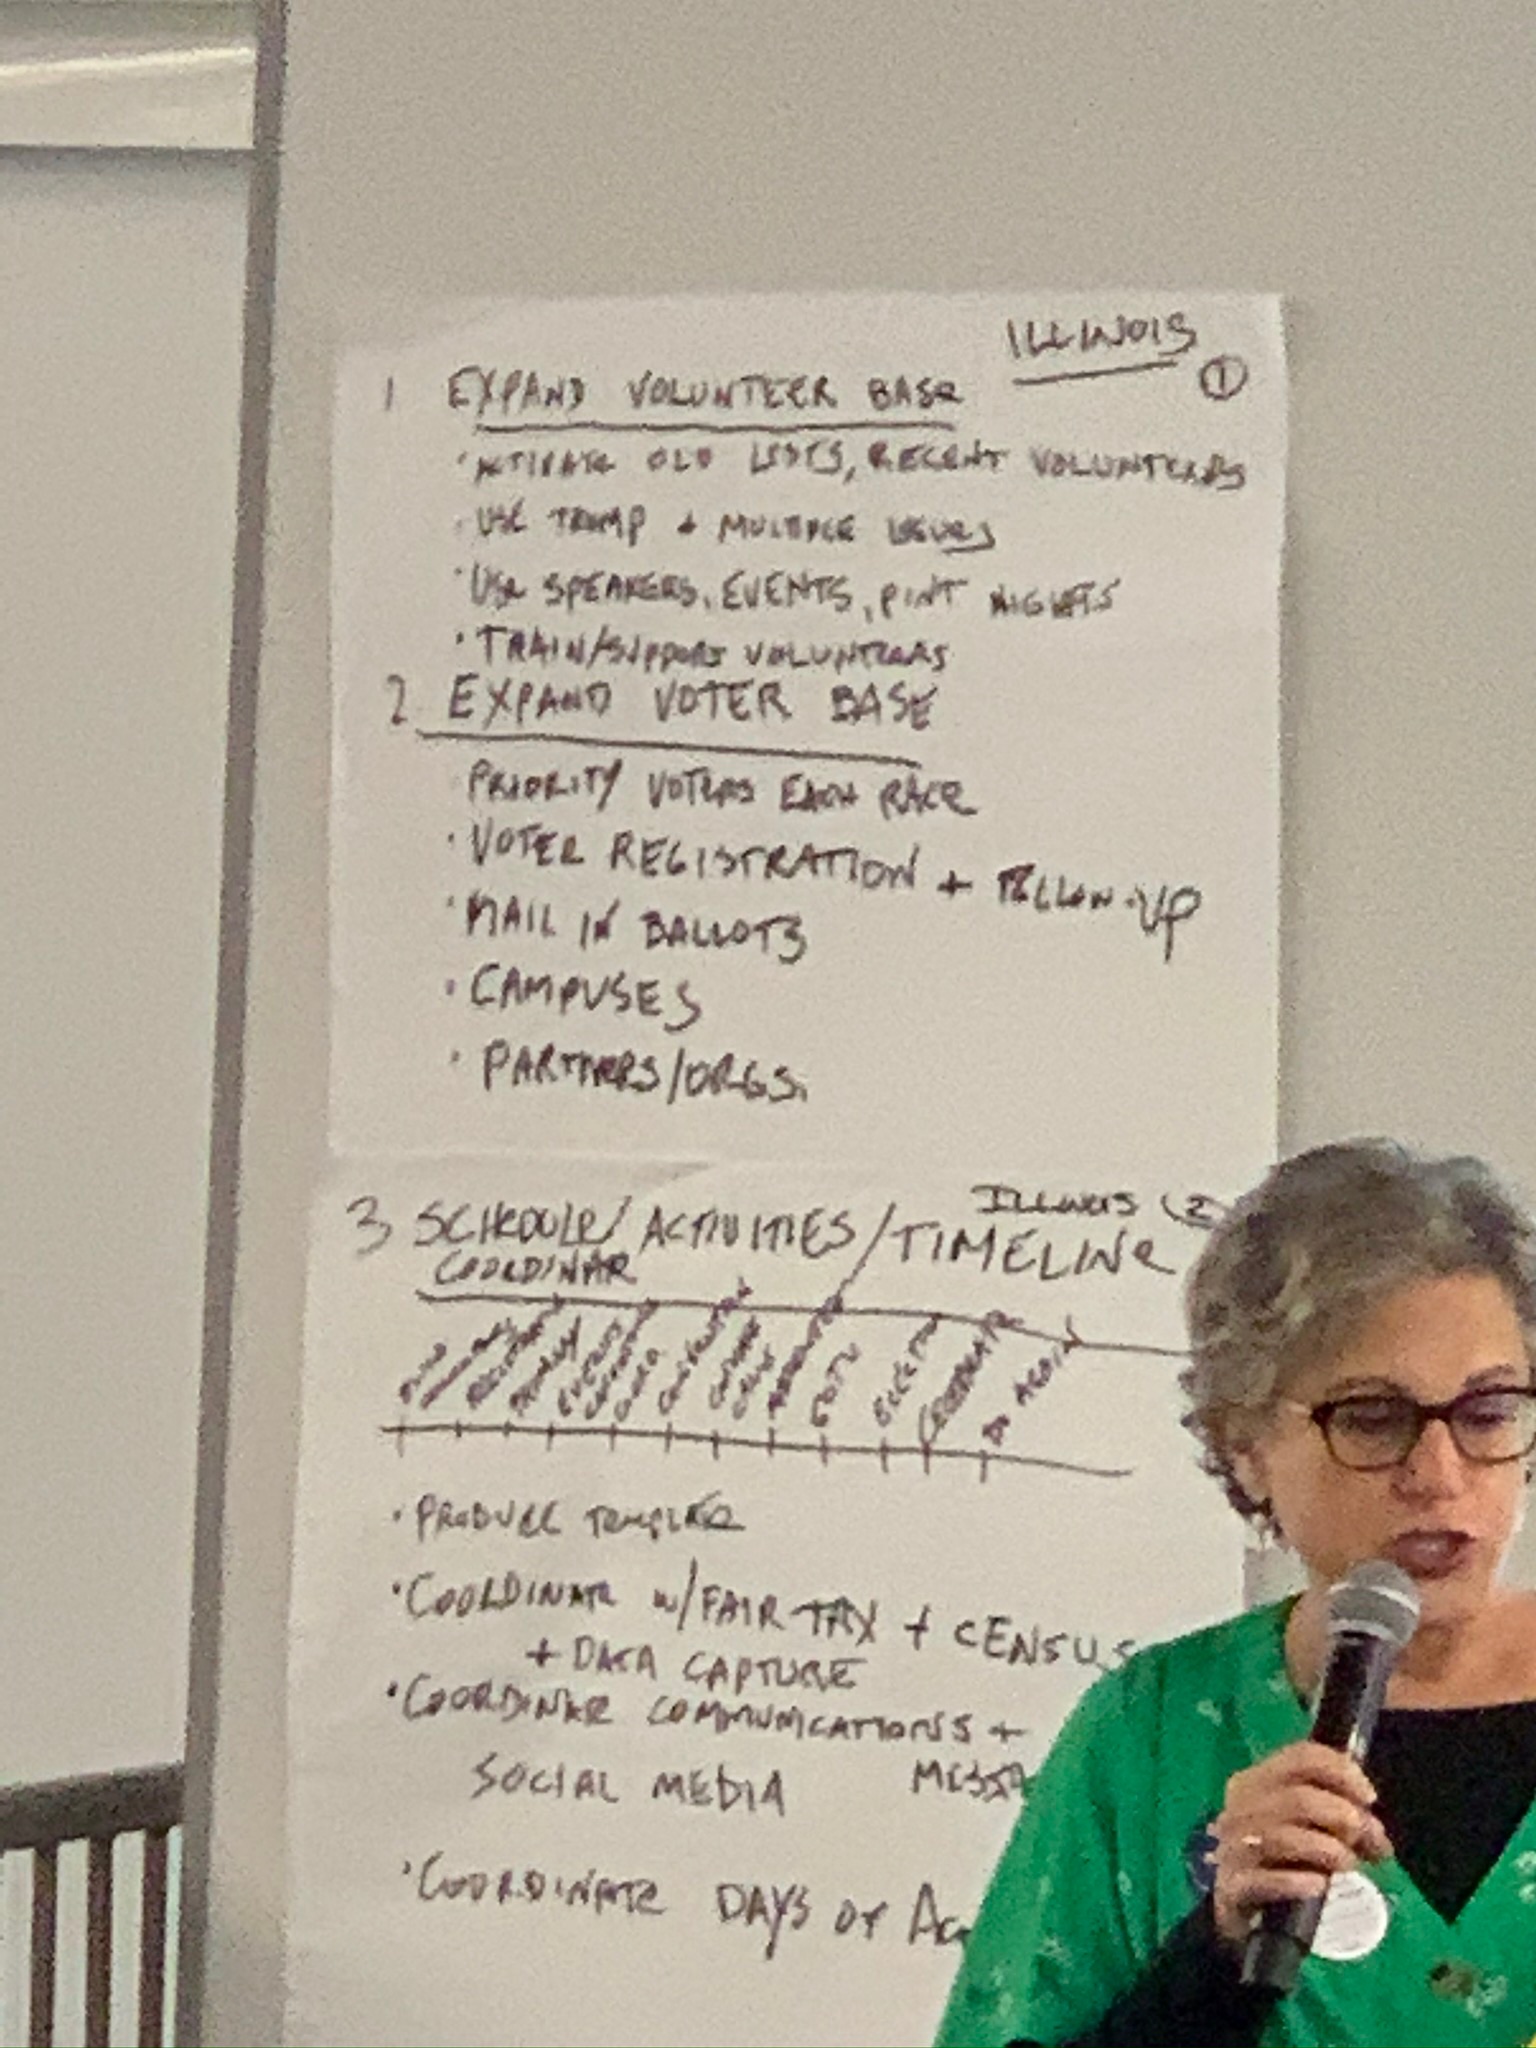 ILLINOIS
1
1 EXPAND VOLUNTEER BASE
· ACTIVATE OLD LISTS, RECENT VOLUNTEERS
· USE TRUMP + MULTIPLE ISSUES
· USE SPEAKERS, EVENTS, PINT NIGHTS
· TRAIN/SUPPORT VOLUNTEERS
2 EXPAND VOTER BASE
PRIORITY VOTERS EACH RACE
· VOTER REGISTRATION + FOLLOW-UP
· MAIL IN BALLOTS
· CAMPUSES
· PARTNERS/ORGS.
ILLINOIS (2
3 SCHEDULE/ACTIVITIES/TIMELINE
COORDINATE
EVENTS
CONVENTION
GOTV
ELECTION
CELEBRATE
DO AGAIN
· PRODUCE TEMPLATE
· COORDINATE w/FAIR TAX + CENSUS
+ DATA CAPTURE
· COORDINATE COMMUNICATIONS +
SOCIAL MEDIA MESSA
· COORDINATE DAYS OF AC